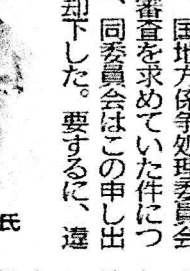 国地方係争処理委員会
審査を求めていた件につ
、同委員会はこの申し出
却下した。要するに、違
氏